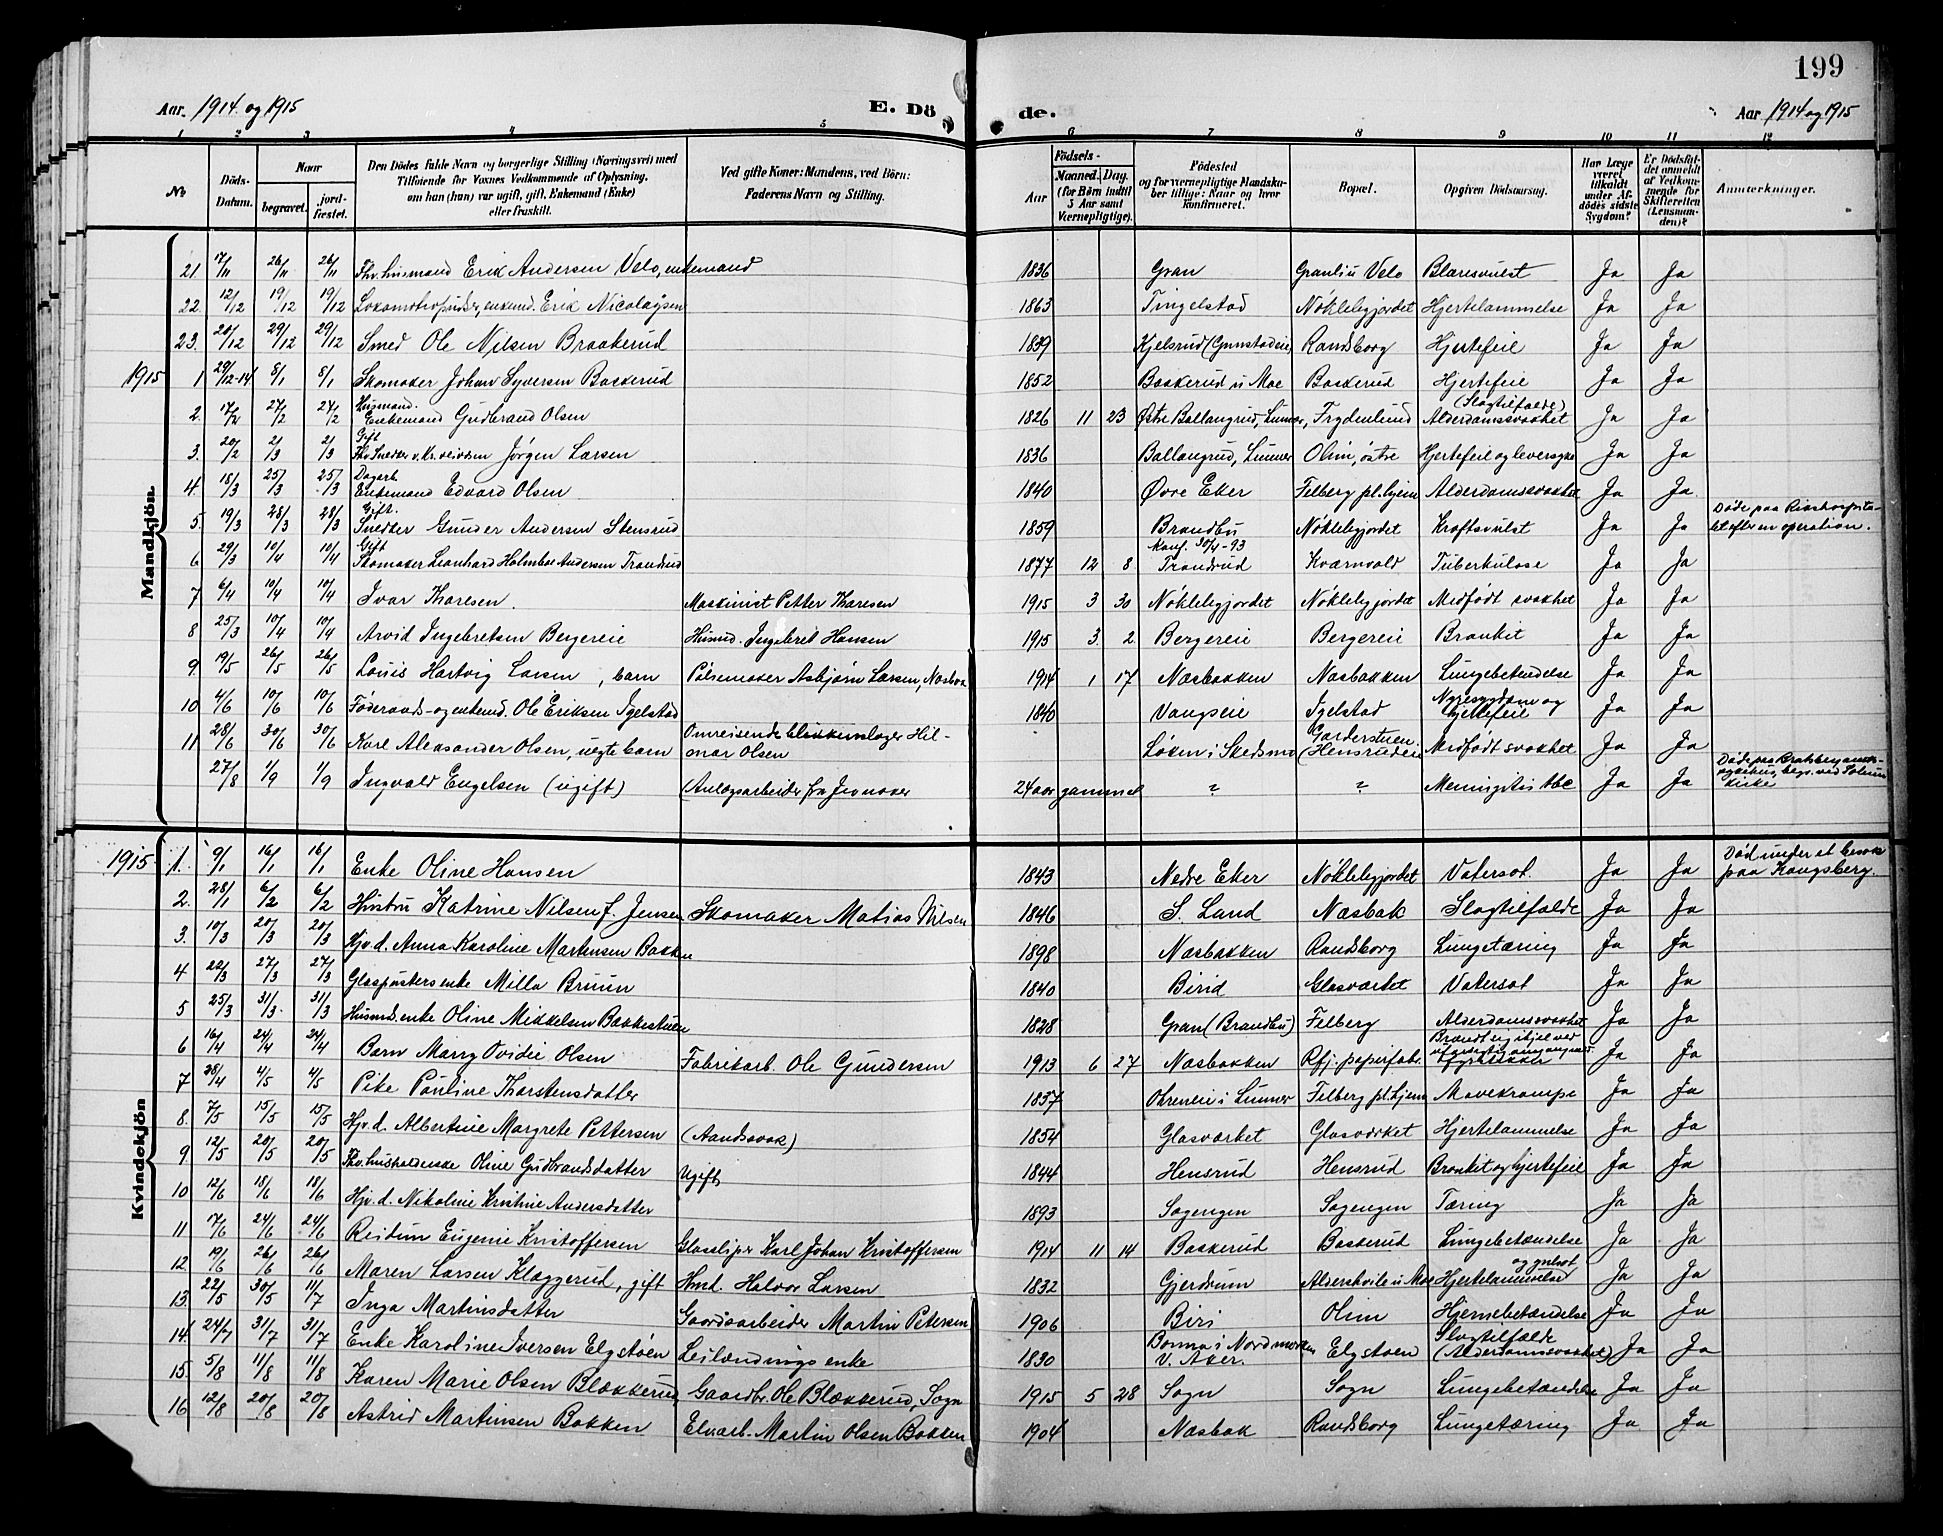 199
Aar. 1914 og 1915 E. Dö de. Aar 1914 og 1915
1 2 3 4 5 6 7 8 9 10 11 12
No Döds-Datum. Naar begravet. jord-fæstet. Den Dödes fulde Navn og borgerlige Stilling (Næringsvei) med Tilföiende for Voxnes Vedkommende af Oplysning, om han (hun) var ugift, gift, Enkemand (Enke) eller fraskilt. Ved gifte Koner: Mandens, ved Börn: Faderens Navn og Stilling. Födsels- Aar Maaned. Dag. (for Börn indtil 5 Aar samt Værnepligtige). Födested og for værnepligtige Mandska-ber tillige: Naar og hvor konfirmeret. Bopæl. Opgiven Dödsaarsag. Har Læge været tilkaldt under Af-dödes sidste Sygdom? Er Dödsfal-det anmeldt af Vedkom-mende for Skifteretten (Lensman-den)? Anmærkninger.
Mandkjön.
21. 17/11 26/11 26/11 Fhv. husmand Erik Andersen Velo, enkemand 1836 Gran Granliu Velo Blæresvulst Ja Ja
22. 12/12 19/12 19/12 Lokomotivpudser, enkemd. Erik Nicolaysen 1863 Tingelstad Nøklebygjordet Hjertelammelse Ja Ja
23. 20/12 29/12 29/12 Smed Ole Nilsen Braakerud 1839 Kjelsrud (Gunstadeie) Randsborg Hjertefeil Ja Ja
1915 1 29/12-14 8/1 8/1 Skomaker Johan Syversen Baskerud 1852 Baskerud u Moe Baskerud Hjertefeil Ja Ja
2. 17/2 27/2 27/2 Husmand. Enkemand Gudbrand Olsen 1826 11 23 Østre Ballangrud, Lunner, Frydenlund (Slagtilfælde) Alderdomssvakhet Ja Ja
3. 20/2 2/3 2/3 Gift Fhv. Snedker Jørgen Larsen 1836 Ballangrud, Lunner Olim, østre Hjertefeil og leversyke Ja Ja
4. 18/3 25/3 25/3 Dagarb. Enkemand Edvard Olsen 1840 Øvre Eker Felberg pl.hjem Alderdomssvakhet Ja Ja
5. 19/3 28/3 28/3 Gift. Snedker Gunder Andersen Stensrud 1859 Brandbu Nøklebygjordet Kræftsvulst Ja Ja Døde paa Rikshospita-let efter en operation.
6 29/3 10/4 10/4 Gift Skomaker Leonhard Holmboe Andersen Trandrud 1877 12 8 konf. 30/4-93 Trandrud Kværnvold Tuberkulose Ja Ja
7 6/4 10/4 10/4 Ivar Thoresen. Maskinist Petter Thoresen 1915 3 30 Nøklebygjordet Nøklebygjordet Medfødt svakhet Ja Ja
8 25/3 10/4 10/4 Arvid Ingebretsen Bergereie Husmd. Ingebret Hansen 1915 3. 2 Bergereie Bergereie Bronkit Ja Ja
9. 19/5 26/5 26/5 Louis Hartvig Larsen, barn Pølsemaker Asbjørn Larsen, Næsbak 1914 1 17 Næsbakken Næsbakken Lungebetændelse Ja Ja
10 4/6 10/6 10/6 Føderaads- og enkemd. Ole Eriksen Igelstad 1840 Vangseie Igelstad Nyresygdom og hjertefeil Ja Ja
11 28/6 30/6 30/6 Karl Aleksander Olsen, uegte barn Omreisende blikkenslager Hil-mar Olsen Løken i Skedsmo Garderstuen (Hensrudeie) Medfødt svakhet Ja Ja
27/8 1/9 1/9 Ingvald Engelsen (ugift) (Anlægsarbeider fra Jevnaker 24 aar gammel ? ? Meningitis tbc Ja Ja Døde paa Bratsberg amts-sykehus, begr. ved Solum kirke
Kvindekjön
1915 1. 9/1 16/1 16/1 Enke Oline Hansen 1843 Nedre Eker Nøklebygjordet Vatersot. Ja Ja Død under et besøk paa Kongsberg.
2. 28/1 6/2 6/2 Hustru Katrine Nilsen f. Jensen Skomaker Matias Nilsen 1846 S. Land Næsbak Slagtilfælde Ja Ja
3. 10/3 20/3 20/3 Hjv. d. Anna Karoline Martinsen Bakken 1898 Næsbakken Randsborg Lungetæring Ja Ja
4 22/3 27/3 27/3 Glaspustersenke Milla Bruun 1840 Birid Glasværket Vatersot Ja Ja
5 25/3 31/3 31/3 Husmd.enke Oline Mikkelsen Bakkestuen 1828 Gran (Brandbu) Felberg Alderdomssvakhet Ja Ja
6 16/4 24/4 24/4 Barn Marry Ovidie Olsen Fabrikarb. Ole Gundersen 1913 6 27 Næsbakken Rfj. papirfabr. Brændt sig ihjel ved uforsigtig omgang med fyrstikker Ja Ja
7 28/4 4/5 4/5 Pike Pauline Thorstensdatter 1837 Ohreneie i Lunner Felberg pl.hjem Mavekrampe Ja Ja
8. 7/5 15/5 15/5 Hjv. d. Albertine Margrete Pettersen (Aandssvak) 1854 Glasværket Glasværket Hjertelammelse Ja Ja
9 12/5 20/5 20/5 Fhv. husholderske Oline Gudbrandsdatter Ugift 1844 Hensrud Hensrud Bronkit og hjertefeil Ja Ja
10 12/6 18/6 18/6 Hjv. d. Nikoline Kristine Andersdatter 1893 Sogengen Sogengen Tæring Ja Ja
11 17/6 24/6 24/6 Reidun Eugenie Kristoffersen Glassliper Karl Johan Kristoffersen 1914 11 14 Baskerud Baskerud Lungebetændelse Ja Ja
12 19/6 26/6 26/6 Maren Larsen Klæggerud, gift Hmd. Halvor Larsen 1832 Gjerdrum Aldershvile u Moe Hjertelammelse Ja Ja
13. 22/5 30/5 11/7 Inga Martinsdatter Gaardsarbeider Martin Petersen 1906 Biri Olim Hjernebetændelse Ja Ja
14 24/7 31/7 31/7 Enke Karoline Iversen Elgstøen Leilændings enke 1830 Bonna i Nordmarken V. Aker. Elgstøen Slagtilfælde (Alderdomssvakhet) Ja Ja
15. 5/8 11/8 11/8 Karen Marie Olsen Blækkerud, Gaardbr. Ole Blækkerud, Sogn 1915 5 28 Sogn Sogn Lungebetændelse Ja Ja
16 12/8 20/8 20/8 Astrid Martinsen Bakken Elvarb. Martin Olsen Bakken 1904 Næsbak Randsborg Lungetæring Ja Ja